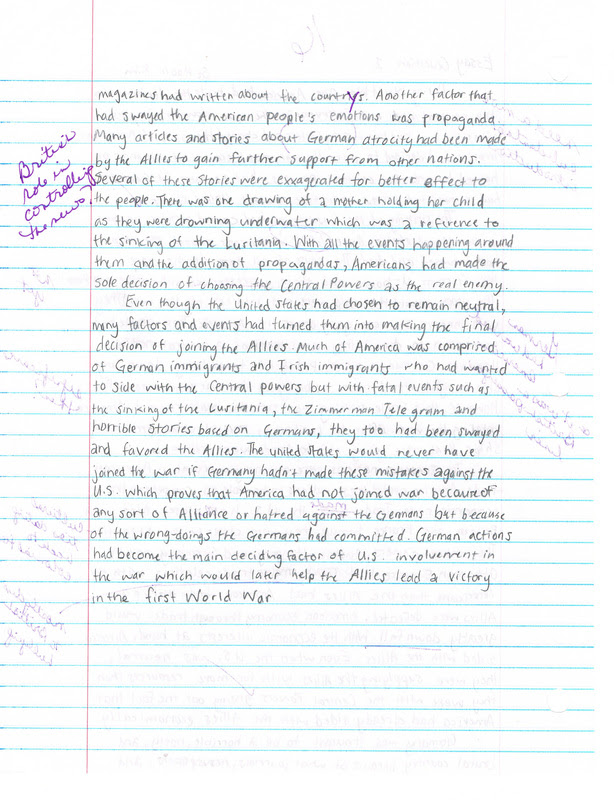 magazines had written about the countrys. Another factor that
had swayed the American people's emotions was propaganda.
Many articles and stories about German atrocity had been made
by the Allies to gain further support from other nations.
Several of these stories were exxagerated for better effect to
the people. There was one drawing of a mother holding her child
as they were drowning underwater which was a reference to
the sinking of the Lusitania. With all the events happening around
them and the addition of propagandas, Americans had made the
sole decision of choosing the Central Powers as the real enemy.
Even though the United States had chosen to remain neutral,
many factors and events had turned them into making the final
decision of joining the Allies. Much of America was comprised
of German immigrants and Irish immigrants who had wanted
to side with the Central powers but with fatal events such as
the sinking of the Lusitania, the Zimmerman Telegram and
horrible stories based on Germans, they too had been swayed
and favored the Allies. The united States would never have
joined the war if Germany hadn't made these mistakes against the
U.S. which proves that America had not joined war because of
any sort of Alliance or hatred against the Germans but because
of the wrong-doings the Germans had committed. German actions
had become the main deciding factor of U.S. involvement in
the war which would later help the Allies lead a victory
in the first World War
British
role in
controlling
the news?